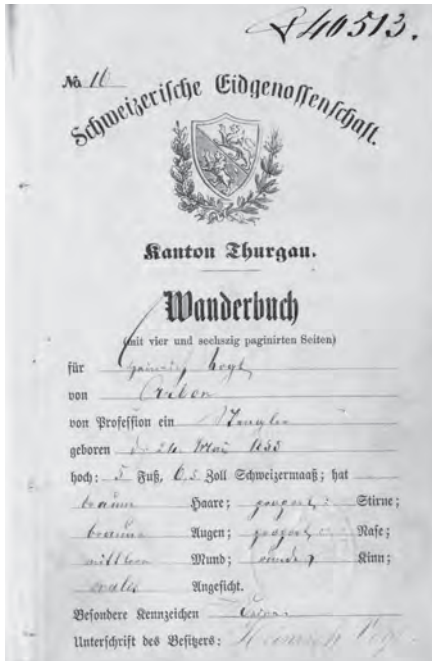 40513.
No 10
Schweizerische Eidgenossenschaft.
Kanton Thurgau.
Wanderbuch
(mit vier und sechszig paginirten Seiten)
für Heinrich Vogt
von Arbon
von Profession ein Spengler
geboren d. 24 Mai 1855
hoch: 5 Fuß, 6.5 Zoll Schweizermaaß; hat
braune Haare; proport: Stirne;
braune Augen; proport: Nase;
mittlern Mund; rundes Kinn;
ovales Angesicht.
Besondere Kennzeichen
Unterschrift des Besitzers: Heinrich Vogt